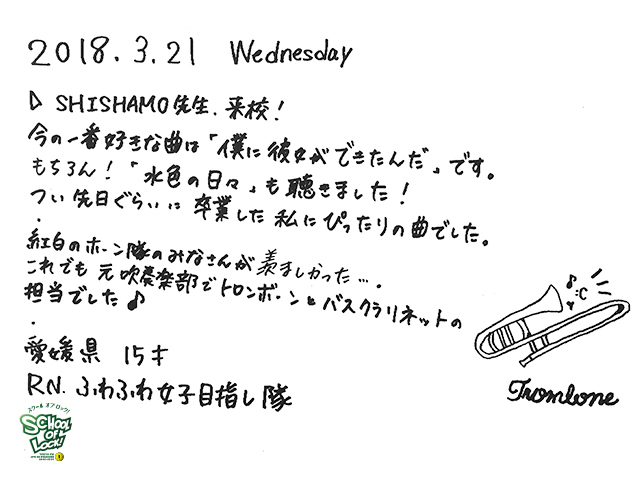 2018.3.21 Wednesday
▷ SHISHAMO先生、来校!
今の一番好きな曲は「僕に彼女ができたんだ」です。
もちろん!「水色の日々」も聴きました!
つい先日ぐらいに卒業した私にぴったりの曲でした。
・
紅白のホーン隊のみなさんが羨ましかった…。
これでも元吹奏楽部でトロンボーンとバスクラリネットの
担当でした♪
・
愛媛県 15才
RN. ふわふわ女子目指し隊
Trombone
スクール オブ ロック!
SCHOOL OF LOCK!